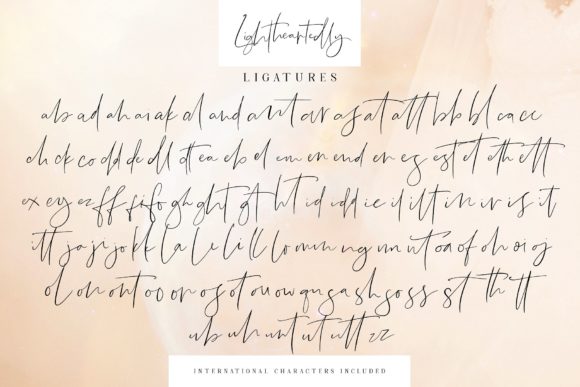 Lightheartedly
LIGATURES
ab ad ah ai ak al and ant ar as at att bb bl ca cc
ch ck co dd de dl dt ea eb el em en end er es est et eth ett
ex ey ez ff fi fo gh ght gt ht id idd ie il ilt in ir is it
itt ja ji jo kk la le li ll lo mm ng nn nt oa of oh oi oj
ol on ont oo or os ot ou ow qu sa sh so ss st th tt
ub uh unt ut utt zz
INTERNATIONAL CHARACTERS INCLUDED